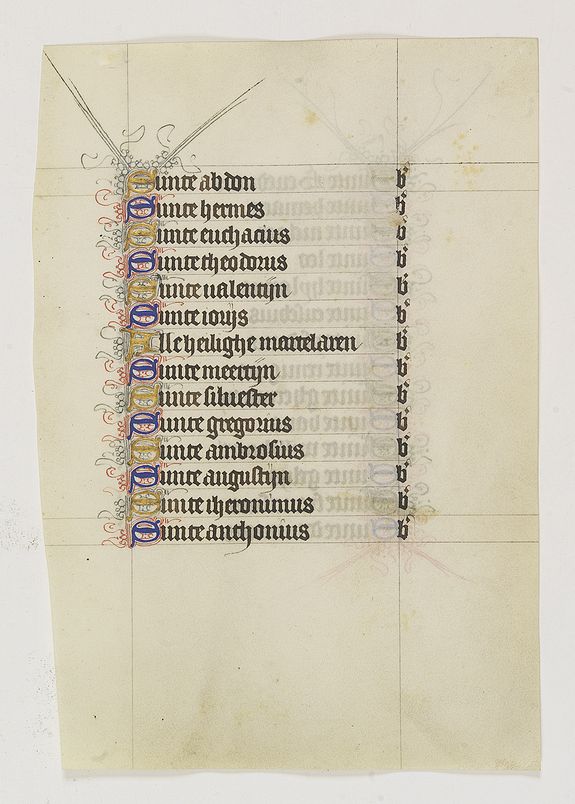 Sunte abdon b
Sunte hermes b
Sunte euchacius b
Sunte theodorus b
Sunte ualentijn b
Sunte ioris b
Alle heilighe martelaren b
Sunte meertijn b
Sunte siluester b
Sunte gregorius b
Sunte ambrosius b
Sunte augustijn b
Sunte iheronimus b
Sunte anthonius b